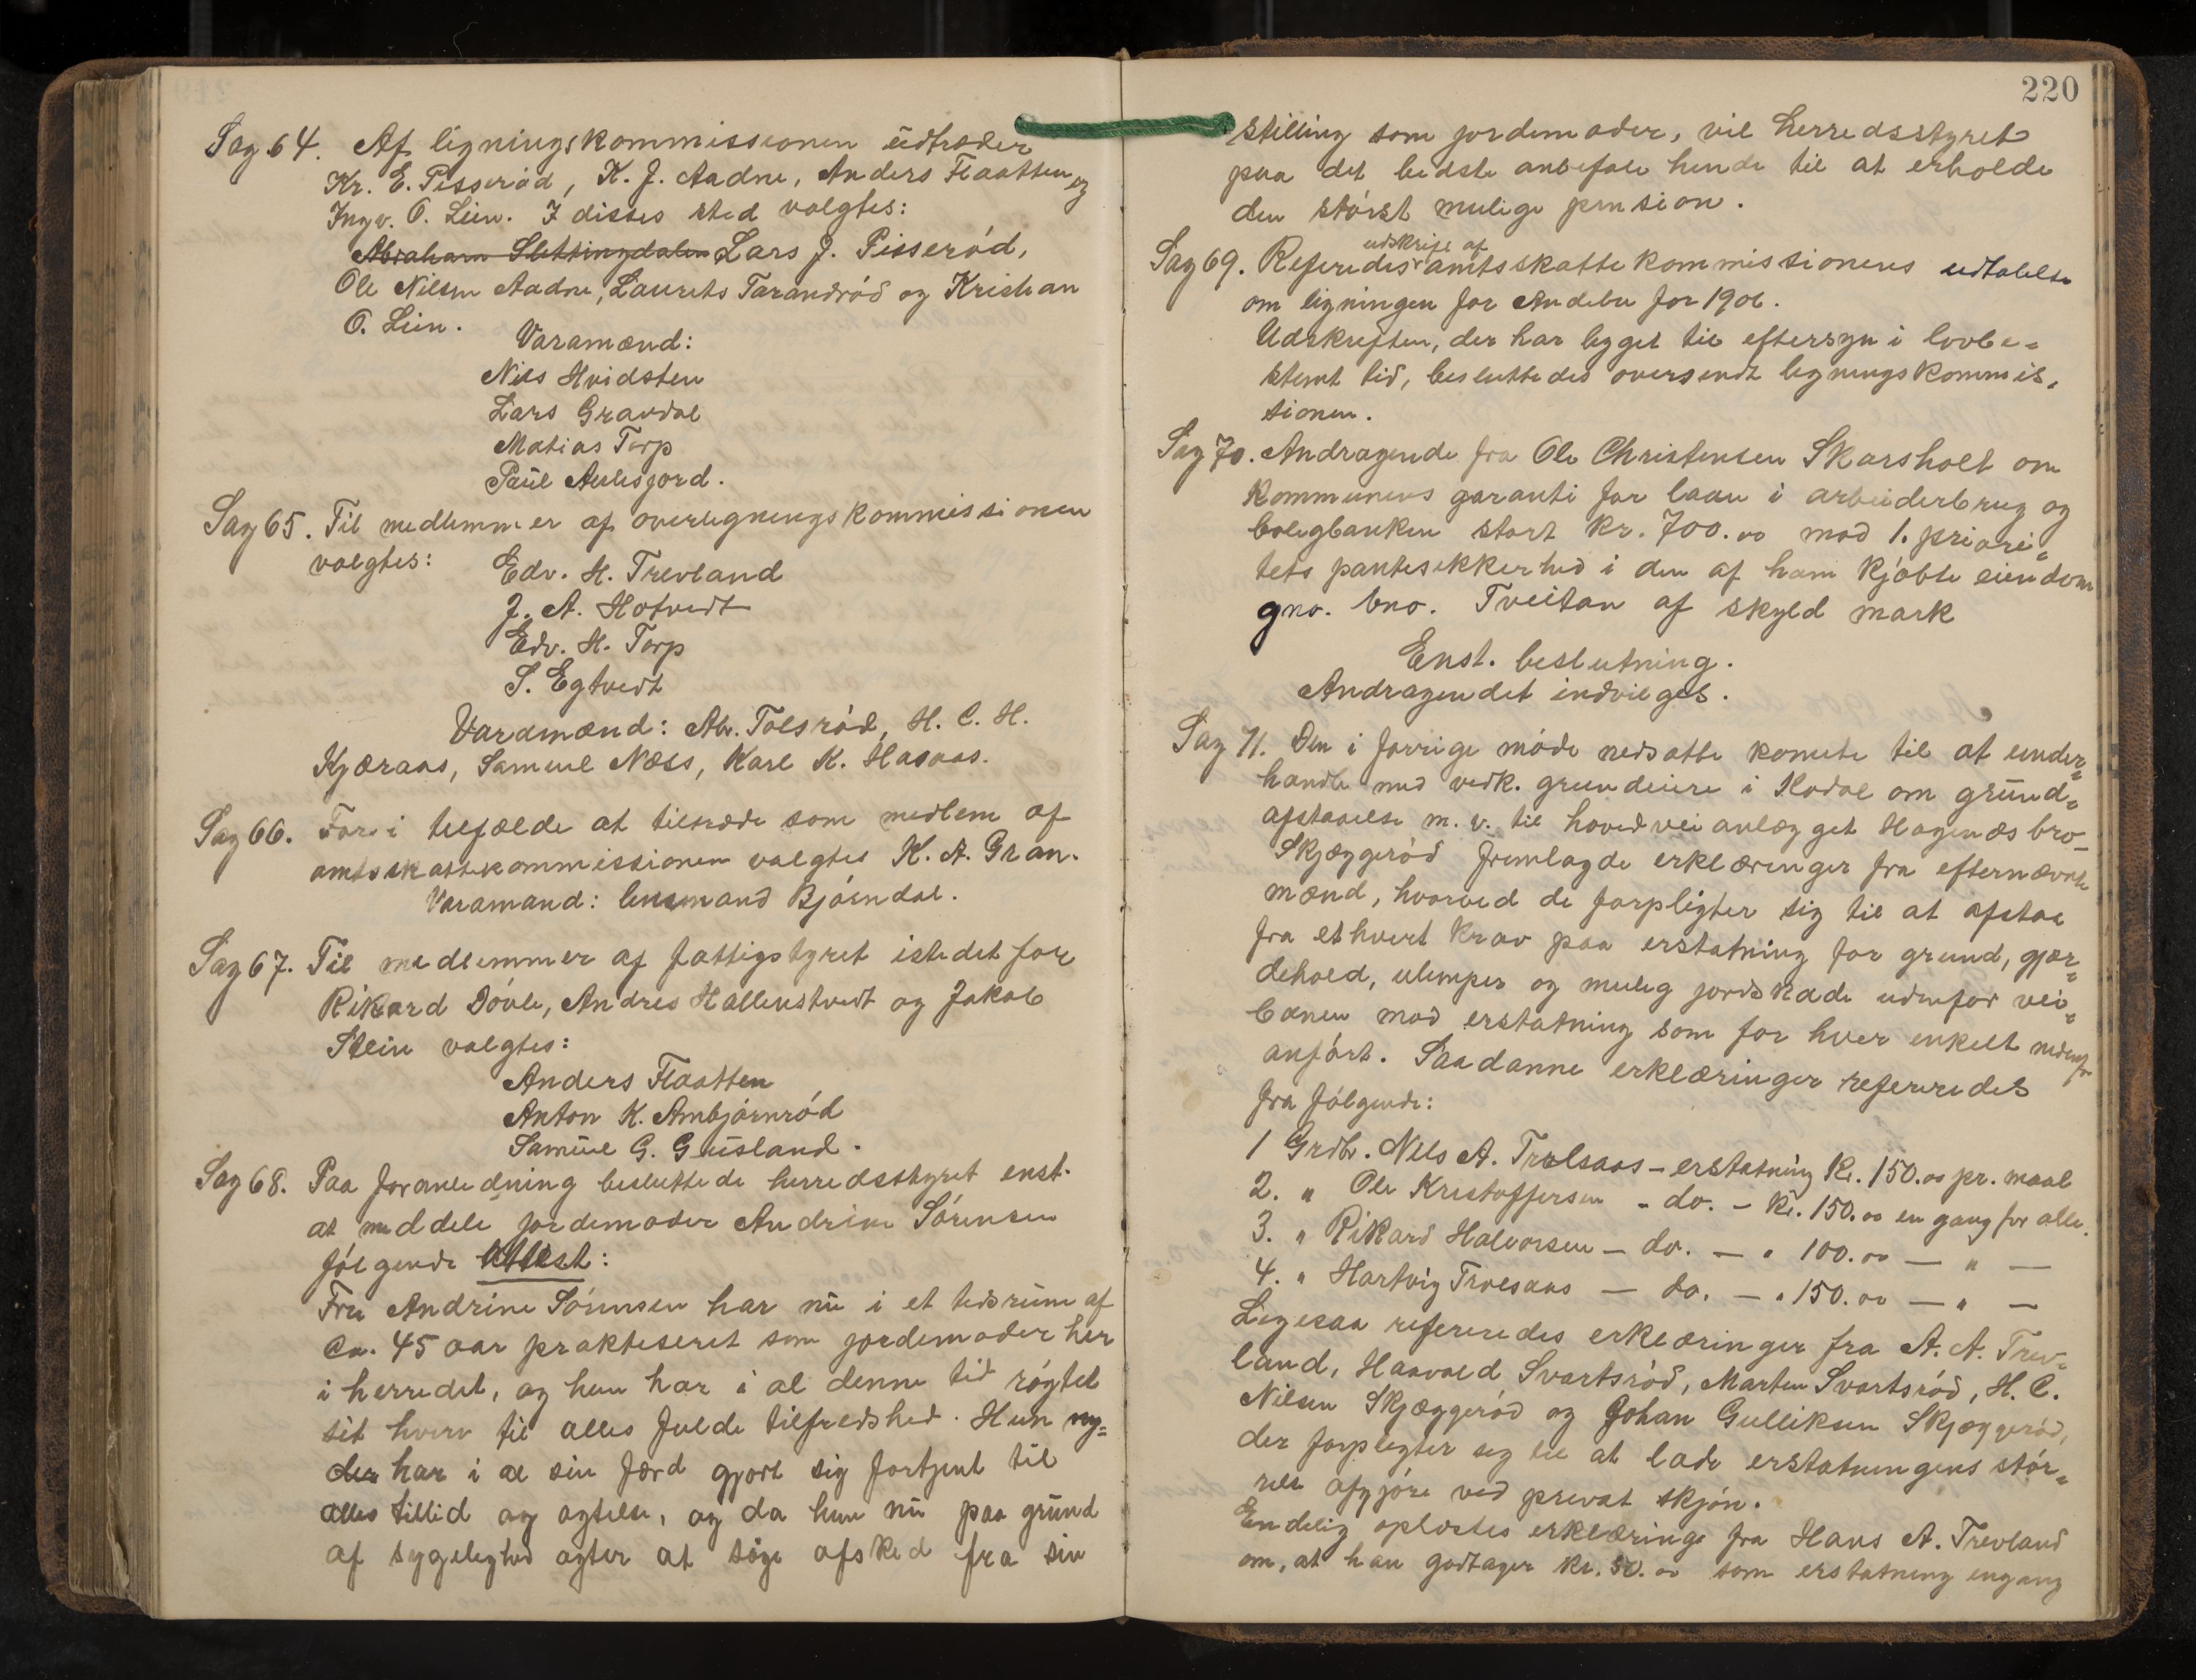 Sag 64. Af ligningskommissionen udtræder
Kr. E. Pisserød, K. J. Aadne, Anders Flaatten og
Ingv. O. Lien. I disses sted valgtes:
Abraham Slettingdalen Lars J. Pisserød,
Ole Nilsen Aadne, Laurits Tarandrød og Kristian
O. Lien.
Varamænd:
Nils Hvidsten
Lars Gravdal
Matias Torp
Paul Aulesjord.
Sag 65. Til medlemmer af overligningskommissionen
valgtes:
Edv. H. Trevland
J. A. Hotvedt
Edv. H. Torp
S. Egtvedt
Varamænd: Abr. Tolsrød, H. C. H.
Kjæraas, Samuel Næss, Karl K. Hasaas.
Sag 66. For i tilfælde at tiltræde som medlem af
amtsskattekommissionen valgtes K. A. Gran.
Varamand: lensmand Bjørndal.
Sag 67. Til medlemmer af fattigstyret istedet for
Rikard Døvle, Andres Hallenstvedt og Jakob
Stein valgtes:
Anders Flaatten
Anton K. Ambjørnrød
Samuel G. Gusland.
Sag 68. Paa foranledning besluttede herredsstyret enst.
at meddele jordemoder Andrine Sørensen
følgende attest:
Fru Andrine Sørensen har nu i et tidsrum af
ca. 45 aar praktiseret som jordemoder her
i herredet, og hun har i al denne tid røgtet
sit hverv til alles fulde tilfredshed. Hun ny-
der har i al sin færd gjort sig fortjent til
alles tillid og agtelse, og da hun nu paa grund
af sygelighed agter at søge afsked fra sin
220
stilling som jordemoder, vil herredsstyret
paa det bedste anbefale hende til at erholde
den størst mulige pension.
udskrift af
Sag 69. Referedes amtsskattekommissionens udtalelse
om ligningen for Andebu for 1906.
Udskriften, der har ligget til eftersyn i lovbe-
stemt tid, besluttedes oversendt ligningskommis-
sionen.
Sag 70. Andragende fra Ole Christensen Skarsholt om
kommunens garanti for laan i arbeiderbrug og
boligbanken stort kr. 700.00 mod 1. priori-
tets pantesikkerhed i den af ham kjøbte eiendom
gno. bno. Tveitan af skyld mark
Enst. beslutning.
Andragendet indvilges.
Sag 71. Den i forrige møde nedsatte komite til at under-
handle med vedk. grundeiere i Kodal om grund-
afstaaelse m. v. til hovedveianlægget Hagenæs bro-
Skjæggerød fremlagde erklæringer fra efternævnte
mænd, hvorved de forpligter sig til at afstaa
fra ethvert krav paa erstatning for grund, gjær-
dehold, ulemper og mulig jordskade udenfor vei-
banen mod erstatning som for hver enkelt nedenfor
anført. Saadanne erklæringer refereredes
fra følgende:
1 Grdbr. Nils A. Trolsaas - erstatning Kr. 150.00 pr. maal
2. " Ole Kristoffersen - do. - kr. 150.00 en gang for alle.
3. " Rikard Halvorsen - do. - " 100.00 - " -
4. " Hartvig Trolsaas - do. - " 150.00 - " -
Ligesaa refereredes erklæringer fra A. A. Trev-
land, Haavald Svartsrød, Marten Svartsrød, H. C.
Nilsen Skjæggerød og Johan Gulliksen Skjæggerød,
der forpligter sig til at lade erstatningens stør-
relse afgjøre ved privat skjøn.
Endelig oplæstes erklæring fra Hans A. Trevland
om, at han godtager kr. 50.00 som erstatning engang